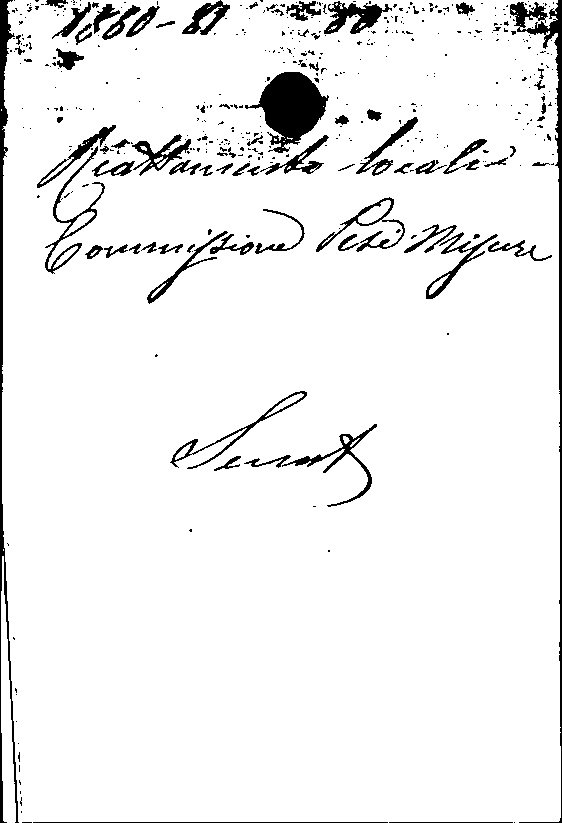 1860-81 80
Riattamento locali
Commissione Pesi Misure